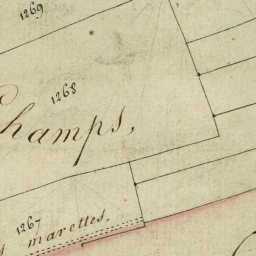 1269
1268
hamps,
1267
marettes,